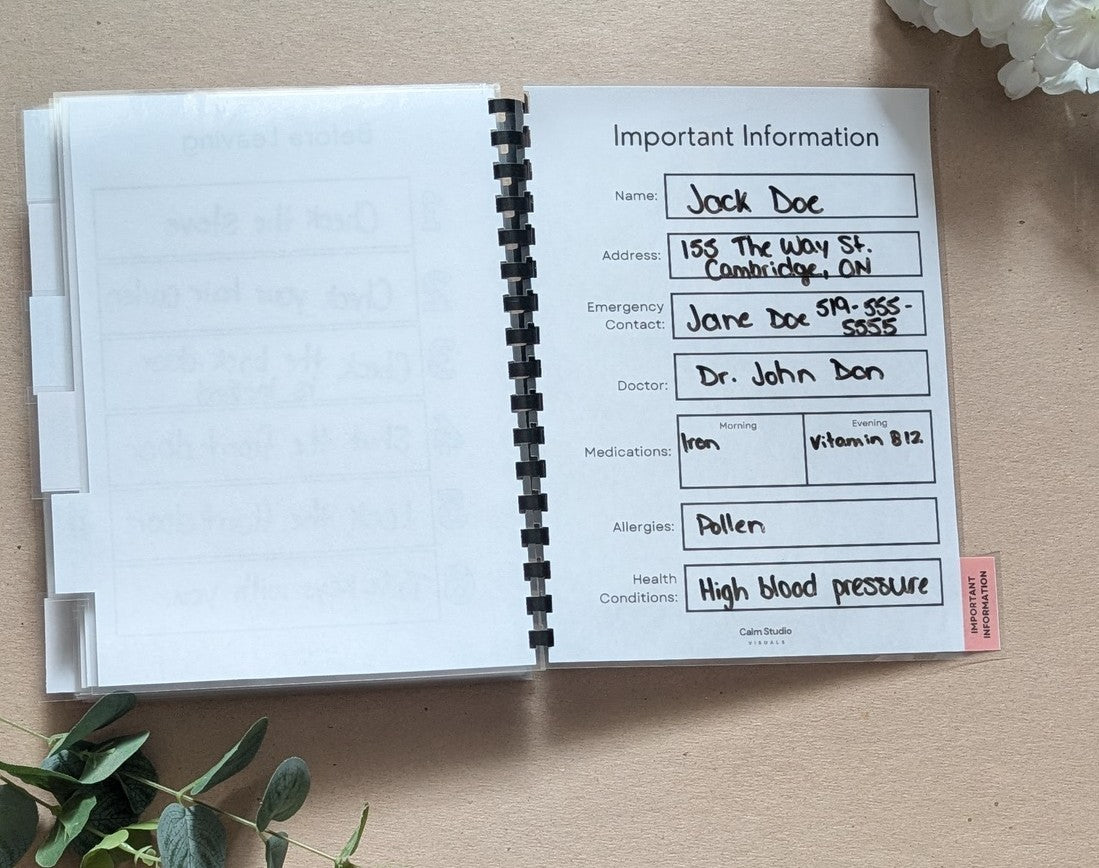 Important Information
Name: Jack Doe
Address: 155 The Way St.
Cambridge, ON
Emergency
Contact: Jane Doe 519-555-
5555
Doctor: Dr. John Don
Morning Evening
Medications: Iron Vitamin B12
Allergies: Pollen
Health
Conditions: High blood pressure
Calm Studio
VISUALS
IMPORTANT
INFORMATION
Before Leaving
Check the stove